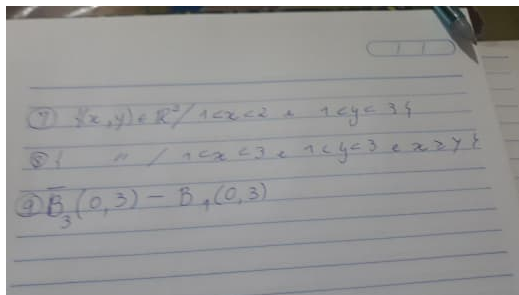 ⑦ {(x,y) e R² / 1<x<2 e 1<y<3}
⑧ { " / 1<x<3 e 1<y<3 e x≥y}
⑨ B̅₃(0,3) – B₁(0,3)